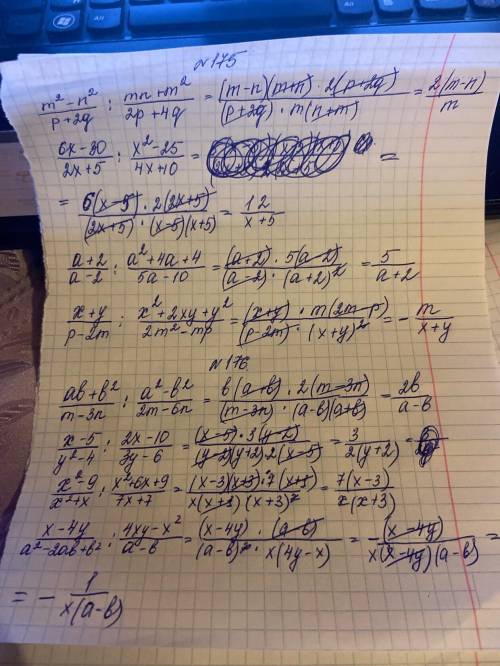 №175
(m² - n²)/(p+2q) : (mn+m²)/(2p+4q) = ((m-n)(m+n) · 2(p+2q))/((p+2q) · m(n+m)) = 2(m-n)/m
(6x-30)/(2x+5) : (x²-25)/(4x+10) = =
= (6(x-5) · 2(2x+5))/((2x+5) · (x-5)(x+5)) = 12/(x+5)
(a+2)/(a-2) : (a²+4a+4)/(5a-10) = ((a+2) · 5(a-2))/((a-2) · (a+2)²) = 5/(a+2)
(x+y)/(p-2m) : (x²+2xy+y²)/(2m²-mp) = ((x+y) · m(2m-p))/((p-2m) · (x+y)²) = - m/(x+y)
№176
(ab+b²)/(m-3n) : (a²-b²)/(2m-6n) = (b(a+b) · 2(m-3n))/((m-3n) · (a-b)(a+b)) = 2b/(a-b)
(x-5)/(y²-4) : (2x-10)/(3y-6) = ((x-5) · 3(y-2))/((y-2)(y+2) · 2(x-5)) = 3/(2(y+2)) =
(x²-9)/(x²+x) : (x²+6x+9)/(7x+7) = ((x-3)(x+3) · 7(x+1))/(x(x+1)(x+3)²) = 7(x-3)/(x(x+3))
(x-4y)/(a²-2ab+b²) : (4xy-x²)/(a-b) = ((x-4y) · (a-b))/((a-b)² · x(4y-x)) = -(x-4y)/(x(x-4y)(a-b)) =
= - 1/(x(a-b))